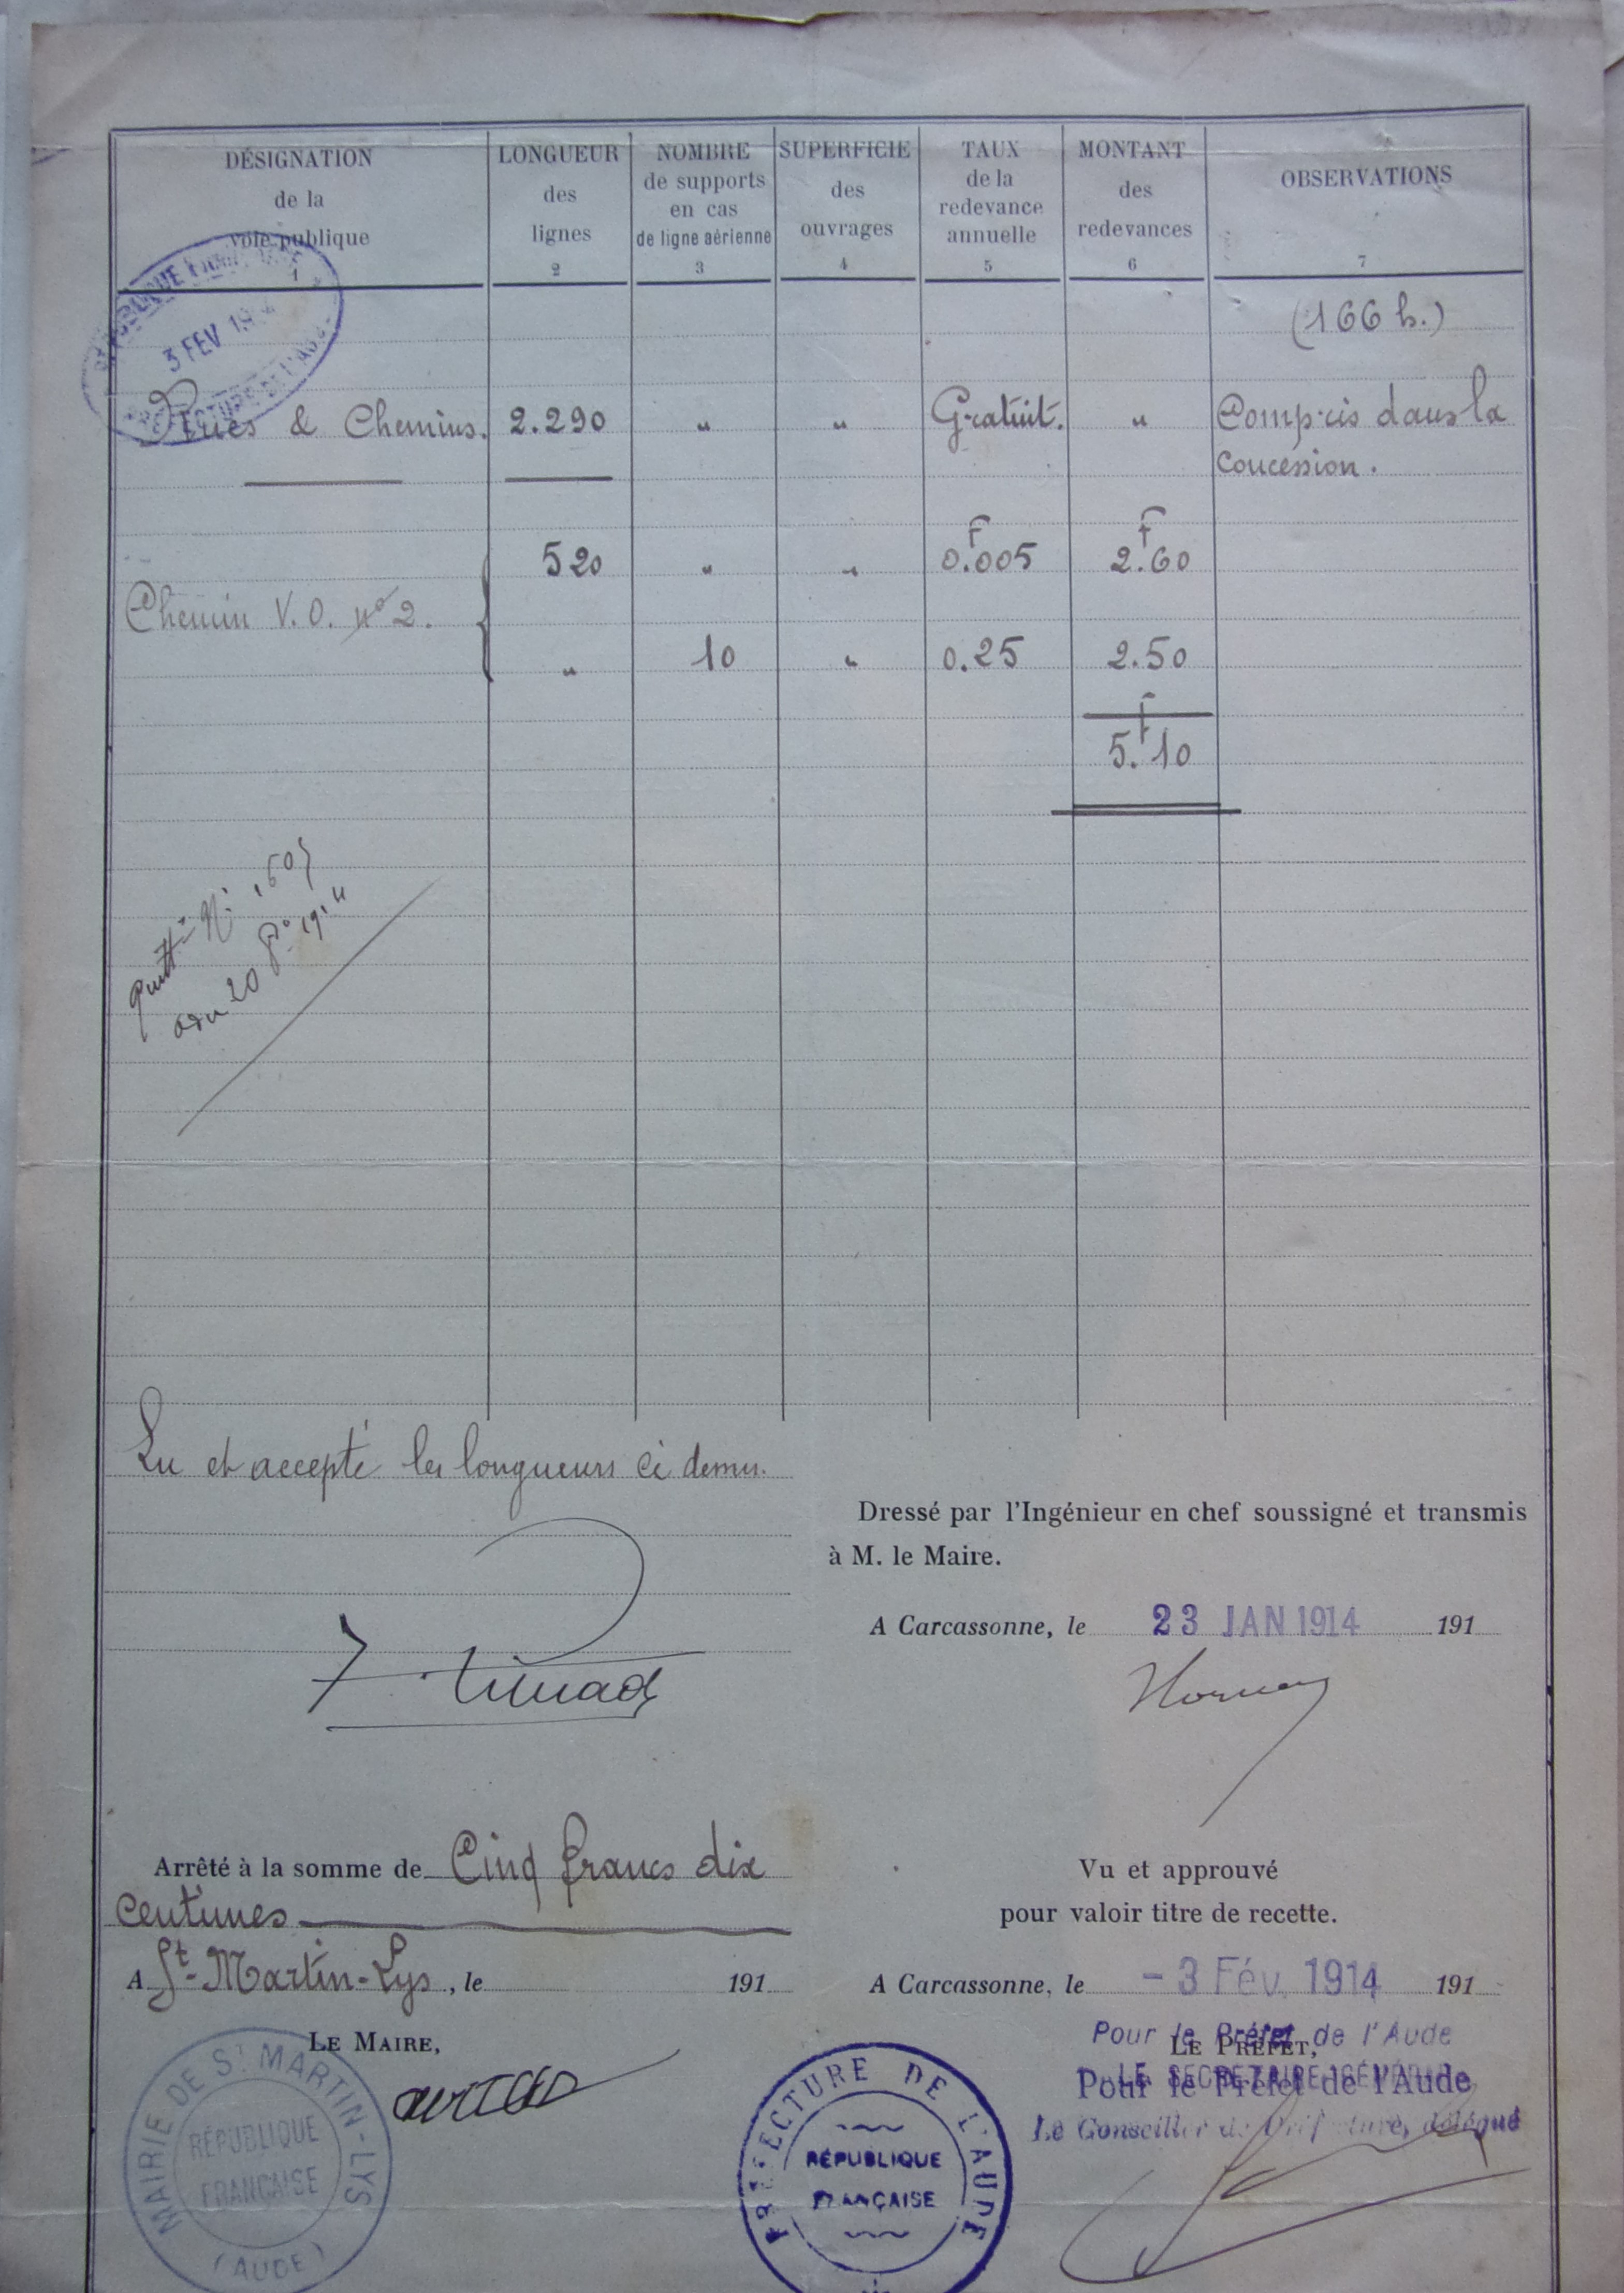 DÉSIGNATION
de la
voie publique
1
LONGUEUR
des
lignes
2
NOMBRE
de supports
en cas
de ligne aérienne
3
SUPERFICIE
des
ouvrages
4
TAUX
de la
redevance
annuelle
5
MONTANT
des
redevances
6
OBSERVATIONS
7
3 FEV 19
(166 h.)
Rues & Chemins. 2.290 " " Gratuit. " Compris dans la
concession.
F F
520 " " 0.005 2.60
Chemin V.O. n° 2.
" 10 " 0.25 2.50
F
5.10
du 20 1914
Lu et accepté les longueurs ci dessus.
Dressé par l'Ingénieur en chef soussigné et transmis
à M. le Maire.
A Carcassonne, le 23 JAN 1914 191
Arrêté à la somme de Cinq francs dix
centimes
A St-Martin-Lys, le 191
LE MAIRE,
MAIRIE DE ST MARTIN-LYS
RÉPUBLIQUE
FRANÇAISE
(AUDE)
Vu et approuvé
pour valoir titre de recette.
A Carcassonne, le - 3 Fév. 1914 191
Pour le Préfet de l'Aude
LE PRÉFET,
LE SECRETAIRE GÉNÉRAL
Pour le Préfet de l'Aude
Le Conseiller de Préfecture, délégué
PRÉFECTURE DE L'AUDE
RÉPUBLIQUE
FRANÇAISE